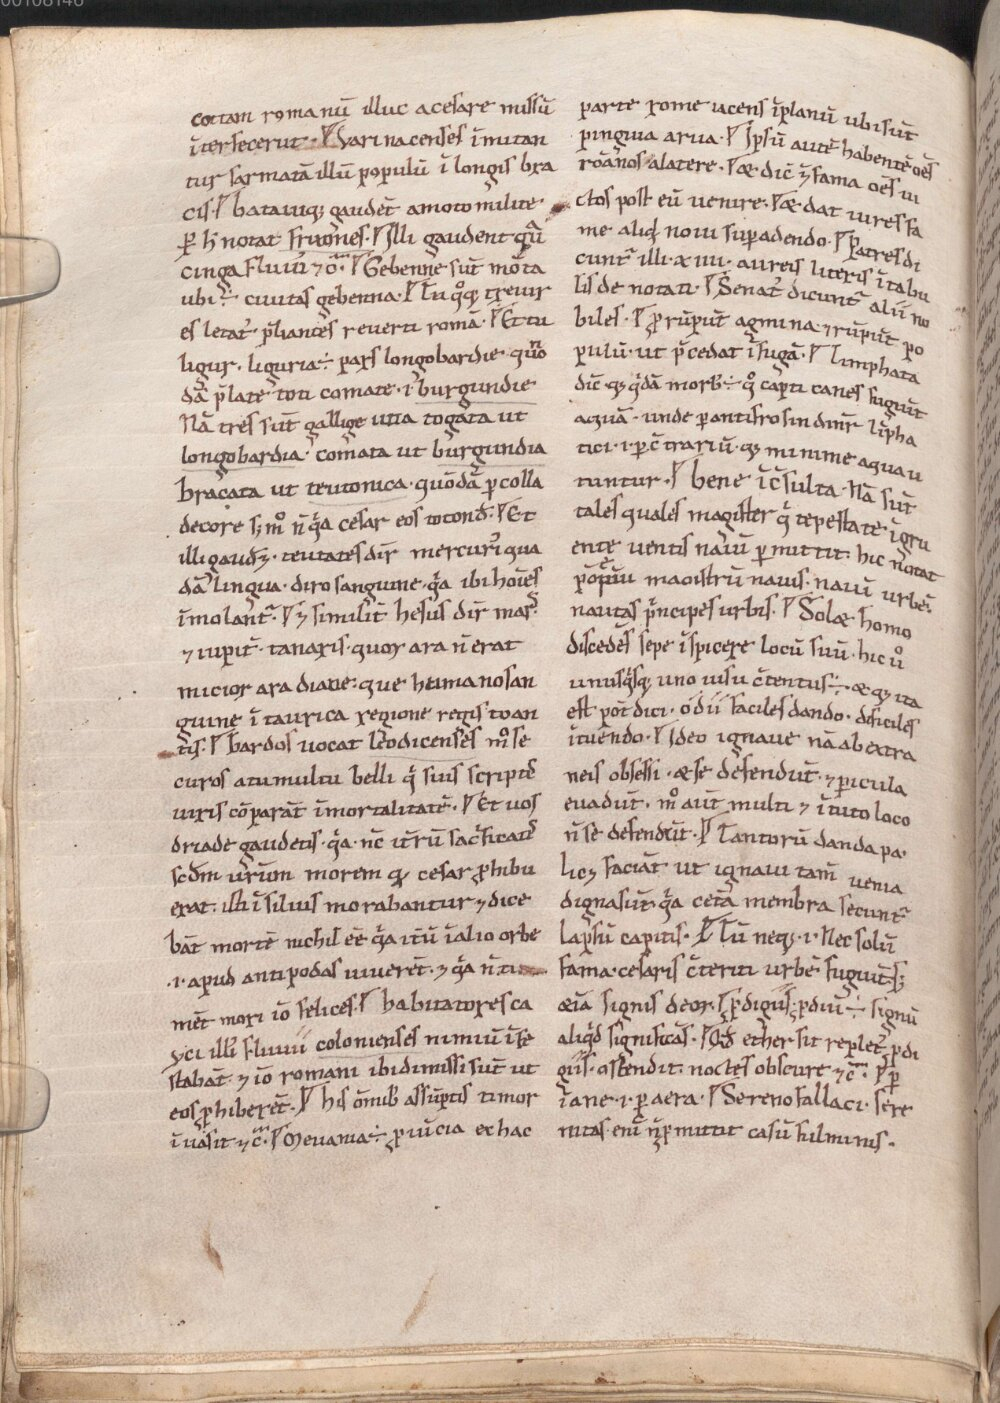 00108146
cottam romanū illuc a cesare missū
īterfecerūt· Sarmacenses īmitan
tur sarmatā illū populū ī longis bra
cis· batauiq; gaudēt amoto milite
ꝑ h̄ notat frisiones· Illi gaudent q̄
cinga fluuiꝰ ⁊ c̄· Gebenne sūt mōta
ubi ÷ ciuitas gebenna· Tu q̊q; treuir
es letat᷑ p̄liantes reuerti romā· Et tu
ligur· liguria ÷ pars longobardie· quō
dā p̄late toti comate· i· burgundie
Nā tres sūt gallige una togata ut
longobardia· comata ut burgundia
bracata ut teutonica· quōdā ꝑ colla
decore s; m̊ n̄ q̄a cesar eos totond᷑· Et
illi gaud;· teutates dir̄ mercuriꝰ qua
dā lingua· diro sanguine· q̄a ibi hoīes
īmolant᷑· ⁊ similit᷑ hesus dir̄ mars
⁊ iupit᷑· tanaris· quoꝝ ara n̄ erat
micior ara diane· que humano san
guine ī taurica regione regis toan
tis· bardos uocat leodicenses m̊ se
curos a tumultu belli q̄ suis scriptꝭ
uiris cōparāt īmortalitatē· Et uos
driade gaudetis· q̄a nc̄ itr̄ū sac̄ficatꝭ
scd̄m ur̄um morem q; cesar ꝓhibu
erat· isti ī siluis morabantur ⁊ dice
bāt mortē nichil eē q̄a itū ī alio orbe
·i· apud antipodas uiuerēt· ⁊ q̄a n̄ ti
mēt mori iō felices· habitatores ca
yci illiꝰ fluuii colonienses nimiū īfe
stabāt· ⁊ iō romani ibi dimissi sūt ut
eos ꝓhiberēt· his ōmibꝰ assūptis timor
īuasit ⁊ c̄· Meuania ÷ ꝓuīcia ex hac
parte rome iacens ī planū ubi sūt
pinguia arua· Ipsū autē habentē oēs
roānos a latere· æ dic̄ ⁊ fama oēs ui
ctos post eū uenire· æ dat uires fa
me aliq̄ noui superaddendo· Patres di
cunt᷑ illi· x iiii· aureis litteris ī tabu
lis de notati· Senat᷑ dicunt᷑ alii no
biles· ꝓrūpūt agmina ⁊ rūpūt po
pulū· ut p̄cedat ī fugā· limphata
dic̄· q; q̄dā morbꝰ ÷ q̊ capti canes fugiūt
aquā· unde ꝑ antifrosin dnr̄ līpha
tici· i· ꝑ c̄trariū· q; minime aqua u
tuntur· bene īc̄sulta· Nā sūt
tales quales magister q̄ tēpestate īgru
ente uentis nauī ꝑmittit· hic notat
pōpeiū magistrū nauis· nauī urbē·
nautas p̄ncipes urbis· Solæ homo
discedēs sepe īspicere locū suū· hic ů
unusq̄sq; uno uisu c̄tentus ÷ æ q; ita
est pōt dici· o dii faciles dando· dificiles
ītuendo· Ideo ignaue nā ab extra
neis obsessi· æ se defendūt· ⁊ ꝑicula
euadūt· m̊ aut̄ multi ⁊ ī tuto loco
n̄ se defendūt· Tantorū danda pa·
lic; faciāt ut ignaui tam̄ uenia
digna sūt q̄a cet̄a membra secunt᷑
lapsū capitis· Tū neq;· i· Nec solū
fama cesaris c̄teriti urbē fugiūt s;
æiā signis deoꝝ· ꝓdigiis· ꝓdiū ÷ signū
aliq̄d significās· Qd̄ ether sit replet᷑ ꝓdi
giis· ostendit· noctes obscure ⁊ c̄· ꝑ
īane· i· ꝑ aera· Sereno fallaci· sere
nitas enī n̄ ꝑmittit casū fulminis·